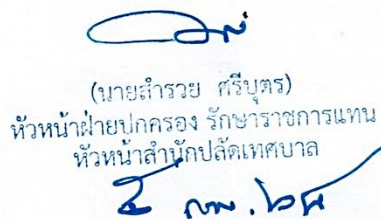 (นายสำรวย ศรีบุตร)
หัวหน้าฝ่ายปกครอง รักษาราชการแทน
หัวหน้าสำนักปลัดเทศบาล